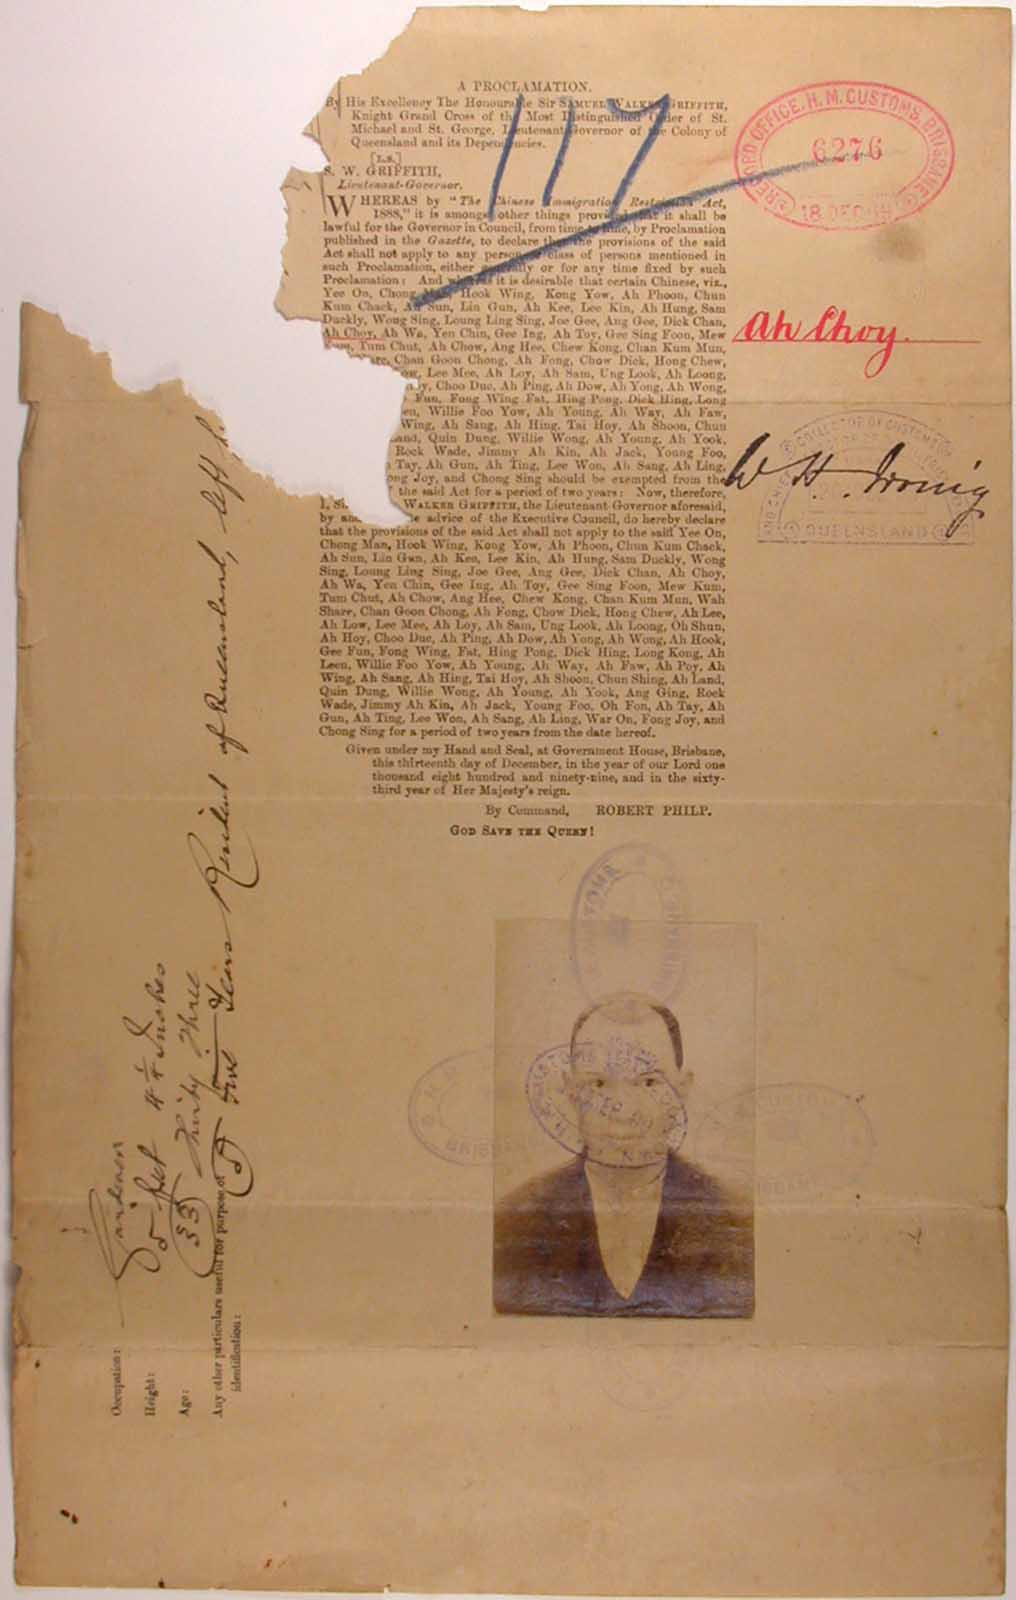 A PROCLAMATION.
By His Excellency The Honourable Sir SAMUEL WALKER GRIFFITH,
Knight Grand Cross of the Most Distinguished Order of St.
Michael and St. George, Lieutenant-Governor of the Colony of
Queensland and its Dependencies.
[L.S.]
S. W. GRIFFITH,
Lieutenant-Governor.
WHEREAS by "The Chinese Immigration Restriction Act,
1888," it is amongst other things provided that it shall be
lawful for the Governor in Council, from time to time, by Proclamation
published in the Gazette, to declare that the provisions of the said
Act shall not apply to any person or class of persons mentioned in
such Proclamation, either generally or for any time fixed by such
Proclamation: And whereas it is desirable that certain Chinese, viz.,
Yee On, Chong Man, Hook Wing, Kong Yow, Ah Phoon, Chun
Kum Chack, Ah Sun, Lin Gun, Ah Kee, Lee Kin, Ah Hung, Sam
Duckly, Wong Sing, Loung Ling Sing, Joe Gee, Ang Gee, Dick Chan,
Ah Choy, Ah Wa, Yen Chin, Gee Ing, Ah Toy, Gee Sing Foon, Mew
Kum, Tum Chut, Ah Chow, Ang Hee, Chew Kong, Chan Kum Mun,
Chan Goon Chong, Ah Fong, Chow Dick, Hong Chew,
Lee Mee, Ah Loy, Ah Sam, Ung Look, Ah Loong,
Choo Duc, Ah Ping, Ah Dow, Ah Yong, Ah Wong,
Fun, Fong Wing Fat, Hing Pong, Dick Hing, Long
Willie Foo Yow, Ah Young, Ah Way, Ah Faw,
Wing, Ah Sang, Ah Hing, Tai Hoy, Ah Shoon, Chun
Quin Dung, Willie Wong, Ah Young, Ah Yook,
Rock Wade, Jimmy Ah Kin, Ah Jack, Young Foo,
Tay, Ah Gun, Ah Ting, Lee Won, Ah Sang, Ah Ling,
Joy, and Chong Sing should be exempted from the
the said Act for a period of two years: Now, therefore,
WALKER GRIFFITH, the Lieutenant-Governor aforesaid,
by advice of the Executive Council, do hereby declare
that the provisions of the said Act shall not apply to the said Yee On,
Chong Man, Hook Wing, Kong Yow, Ah Phoon, Chun Kum Chack,
Ah Sun, Lin Gun, Ah Kee, Lee Kin, Ah Hung, Sam Duckly, Wong
Sing, Loung Ling Sing, Joe Gee, Ang Gee, Dick Chan, Ah Choy,
Ah Wa, Yen Chin, Gee Ing, Ah Toy, Gee Sing Foon, Mew Kum,
Tum Chut, Ah Chow, Ang Hee, Chew Kong, Chan Kum Mun, Wah
Share, Chan Goon Chong, Ah Fong, Chow Dick, Hong Chew, Ah Lee,
Ah Low, Lee Mee, Ah Loy, Ah Sam, Ung Look, Ah Loong, Oh Shun,
Ah Hoy, Choo Duc, Ah Ping, Ah Dow, Ah Yong, Ah Wong, Ah Hook,
Gee Fun, Fong Wing, Fat, Hing Pong, Dick Hing, Long Kong, Ah
Leen, Willie Foo Yow, Ah Young, Ah Way, Ah Faw, Ah Poy, Ah
Wing, Ah Sang, Ah Hing, Tai Hoy, Ah Shoon, Chun Shing, Ah Land,
Quin Dung, Willie Wong, Ah Young, Ah Yook, Ang Ging, Rock
Wade, Jimmy Ah Kin, Ah Jack, Young Foo, Oh Fon, Ah Tay, Ah
Gun, Ah Ting, Lee Won, Ah Sang, Ah Ling, War On, Fong Joy, and
Chong Sing for a period of two years from the date hereof.
Given under my Hand and Seal, at Government House, Brisbane,
this thirteenth day of December, in the year of our Lord one
thousand eight hundred and ninety-nine, and in the sixty-
third year of Her Majesty's reign.
By Command, ROBERT PHILP.
GOD SAVE THE QUEEN!
117
RECORD OFFICE. H. M. CUSTOMS, BRISBANE
6276
18 DEC
Ah Choy.
COLLECTOR OF CUSTOMS
QUEENSLAND
W H Irving
Occupation: Gardener
Height: 5 feet 4 1/4 Inches
Age: (33) Thirty Three
Any other particulars useful for purpose of (5) Five Years Resident of Queensland, left
identification: